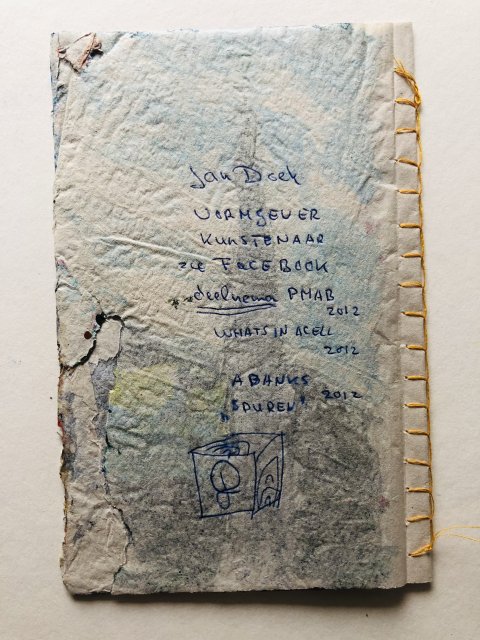 Jan Doek
VORMGEVER
KUNSTENAAR
zie FACEBOOK
deelnema PMAB
2012
WHATS IN A CELL
2012
ABANKS
"SPUREN" 2012